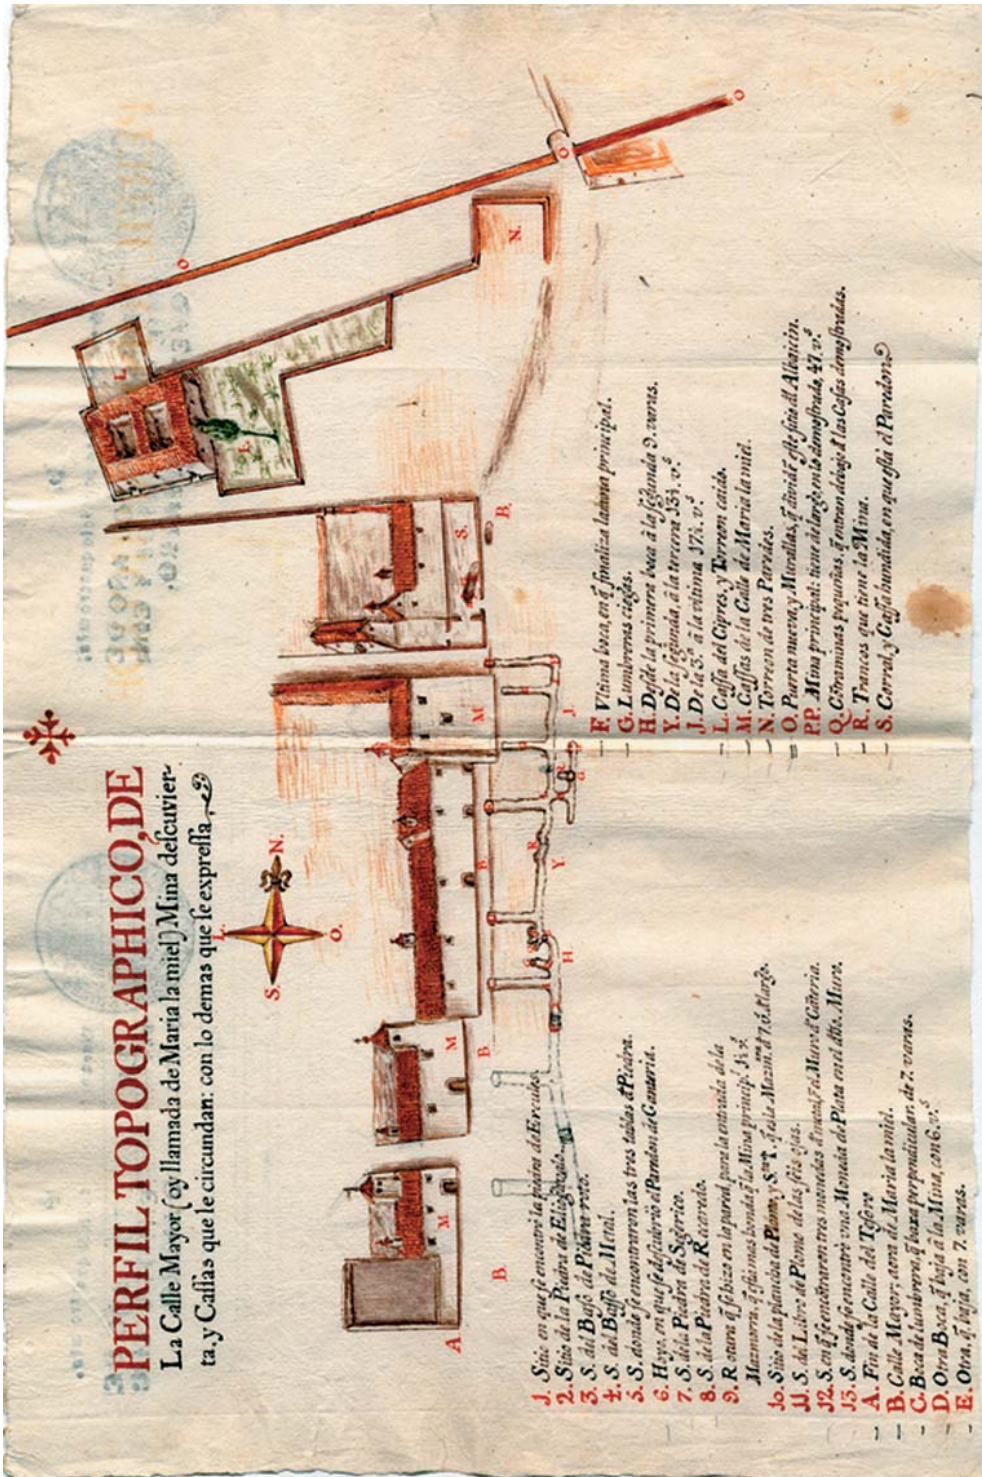 PERFIL TOPOGRAPHICO, DE
La Calle Mayor (oy llamada de Maria la miel) Mina descuvier-
ta, y Cassas que le circundan: con lo demas que se expressa
S. L. N. O.
L. L. O O O N.
A B. M M B. B M S. B.
H Y R J
1. Sitio en que se encontrò la piedra de Ercules.
2. Sitio de la Piedra de
3. S. del Basso de
4. S. del Basso de Metal.
5. S. donde se encontraron las tres tablas d Piedra.
6. Hoyo, en que se descubriò el Paredon de Canteria.
7. S. de la Piedra de
8. S. de la Piedra de Ricaredo.
9. Rotura q̃ se hizo en la pared, para la entrada de la
Mazmorra, q̃ es mas honda q̃ la Mina princip.
10. Sitio de la plancha de Plomo, y
11. S. del Libro de Plomo de las seis ojas.
12. S. en q̃ se encõtraron tres monedas d metal, y el Muro d Cãteria.
13. S. donde se encontrò una Moneda de Plata en el dho. Muro.
A. Fin de la Calle del Tesoro
B. Calle Mayor; aora de Maria la miel.
C. Boca de lumbrera, q̃ baxa perpendicular, de 7. varas.
D. Otra Boca, q̃ baja à la Mina, con 6. v.s
E. Otra, q̃ baja, con 7. varas.
F. Vltima boca, en q̃ finaliza la mina principal.
G. Lumbreras ciegas.
H. Desde la primera boca à la segunda 9. varas.
Y. De la segunda, à la tercera 13½. v.s
J. De la 3.a à la vltima 17½. v.s
L. Cassa del Cipres, y Torreon caido.
M. Cassas de la Calle de Maria la miel.
N. Torreon de tres Paredes.
O. Puerta nueva, y Murallas, q̃ dividẽ este sitio dl Albaicin.
P.P. Mina principal: tiene de largo, en lo demostrado, 47. v.s
Q. Cõtraminas pequeñas, q̃ entran debajo d las Casas demostradas.
R. Trancos que tiene la Mina.
S. Corral, y Cassa hundida, en que està el Paredon